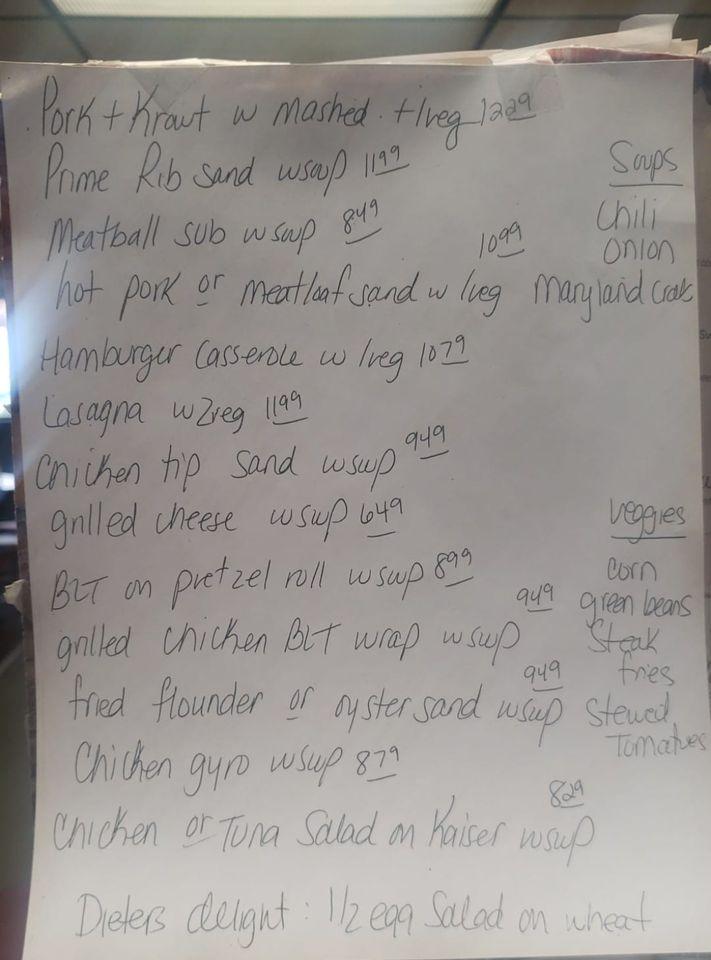 Pork + Kraut w mashed + 1veg 1229
Prime Rib sand wsoup 1199
Meatball sub w soup 849
hot pork or meatloaf sand w 1veg 1099
Hamburger Casserole w 1veg 1079
Lasagna w2veg 1199
Chicken tip sand wsoup 949
grilled cheese wsoup 649
BLT on pretzel roll wsoup 899
grilled chicken BLT wrap wsoup 949
fried flounder or oyster sand wsoup 949
Chicken gyro wsoup 879
Chicken or Tuna Salad on Kaiser wsoup 829
Dieters delight: 1/2 egg Salad on wheat
Soups
Chili
Onion
Maryland Crab
Veggies
corn
green beans
Steak
fries
Stewed
Tomatoes